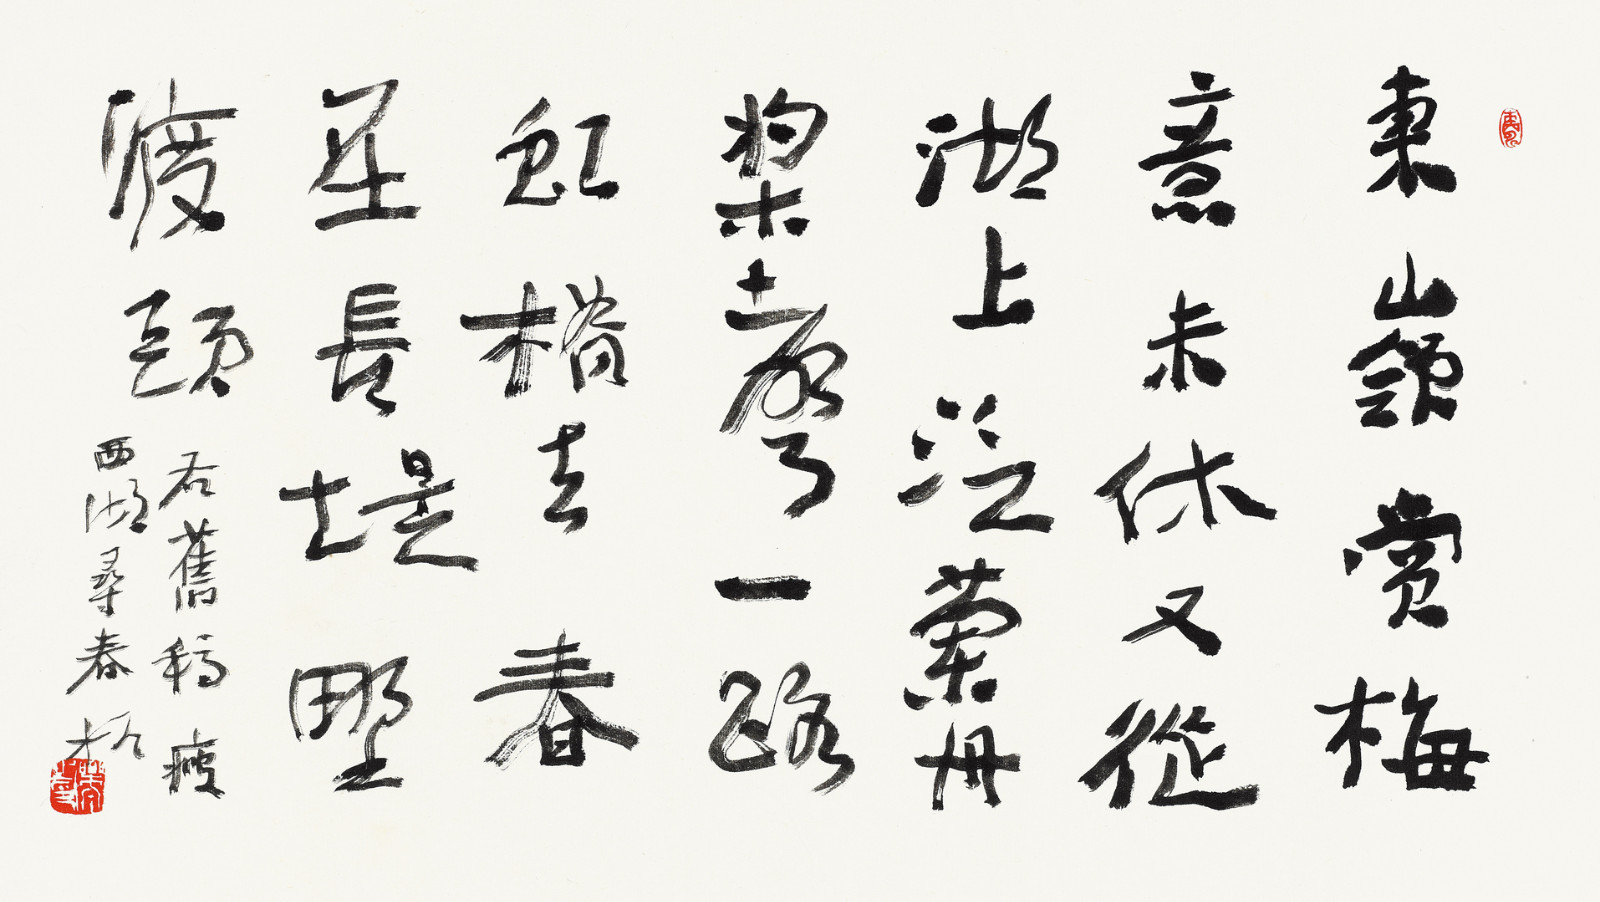 東嶺賞梅
意未休又從
湖上泛蘭舟
槳聲一路
虹橋去春
長堤野
渡頭
右舊稿瘦
西湖尋春